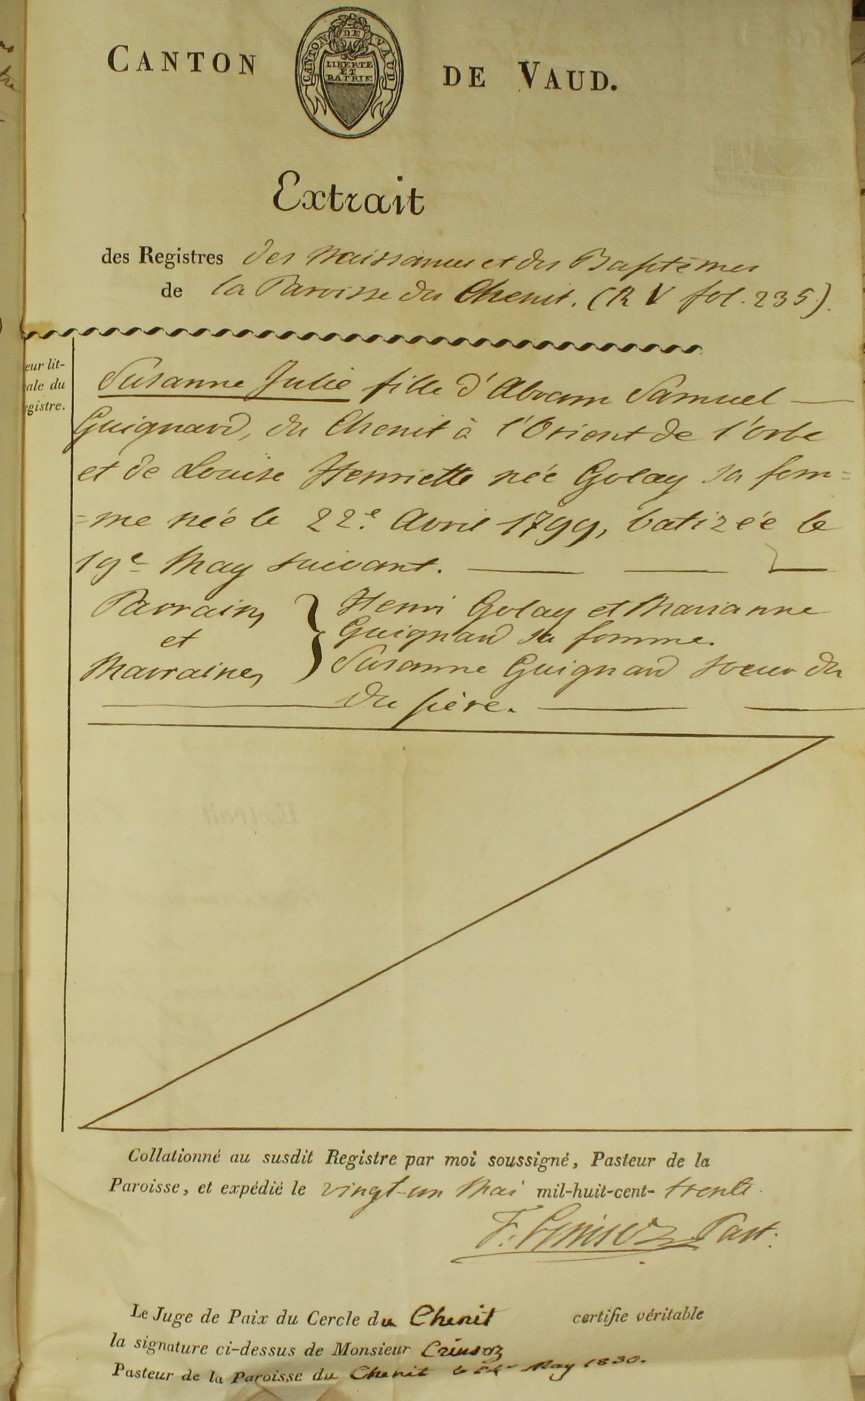 CANTON DE VAUD.
CANTON DE VAUD
LIBERTÉ
ET
PATRIE
Extrait
des Registres des Naissances et des Baptêmes
de la Paroisse du Chenit. (R V fol. 235).
eur lit-
ale du
gistre.
Susanne Julie fille d'Abram Samuel
Guignard, du Chenit à l'Orient de l'Orbe
et de Louise Henriette née Golay sa fem=
=me née le 22.e Avril 1799, batizée le
19e May suivant.
Parrain, } Henri Golay et Marianne
et Guignard sa femme.
Marraine, Susanne Guignard soeur du
du père.
Collationné au susdit Registre par moi soussigné, Pasteur de la
Paroisse, et expédié le vingt-un Mai mil-huit-cent- trente
F. Crinsoz Past.
Le Juge de Paix du Cercle du Chenit certifie véritable
la signature ci-dessus de Monsieur Crinsoz
Pasteur de la Paroisse du Chenit le May 1830.